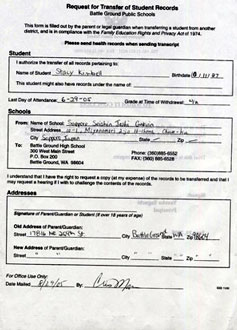 Request for Transfer of Student Records
Battle Ground Public Schools
This form is filled out by the parent or legal guardian when transferring a student from another
district, and is in compliance with the Family Education Rights and Privacy Act of 1974.
Please send health records when sending transcript
Student
I authorize the transfer of all records pertaining to:
Name of Student Stacy Kimbell Birthdate
This student might also have records under the name of
Last Day of Attendance: 6-29-05 Grade at Time of Withdrawal:
Schools
From: Name of School Sapporo Seishin Joshi Gakuin
Street Address
City Sapporo, Japan State Zip
To: Battle Ground High School Phone: (360)885-6552
300 West Main Street FAX: (360) 885-6528
P.O. Box 200
Battle Ground, WA 98604
I understand that I have the right to request a copy (at my expense) of the records to be transferred and that I
may request a hearing if I wish to challenge the contents of the records.
Addresses
Signature of Parent/Guardian or Student (if over 18 years of age)
Old Address of Parent/Guardian:
Street City Battle Ground State WA Zip 98604
New Address of Parent/Guardian:
Street City State Zip
For Office Use Only:
Date Mailed 8/29/05 By: